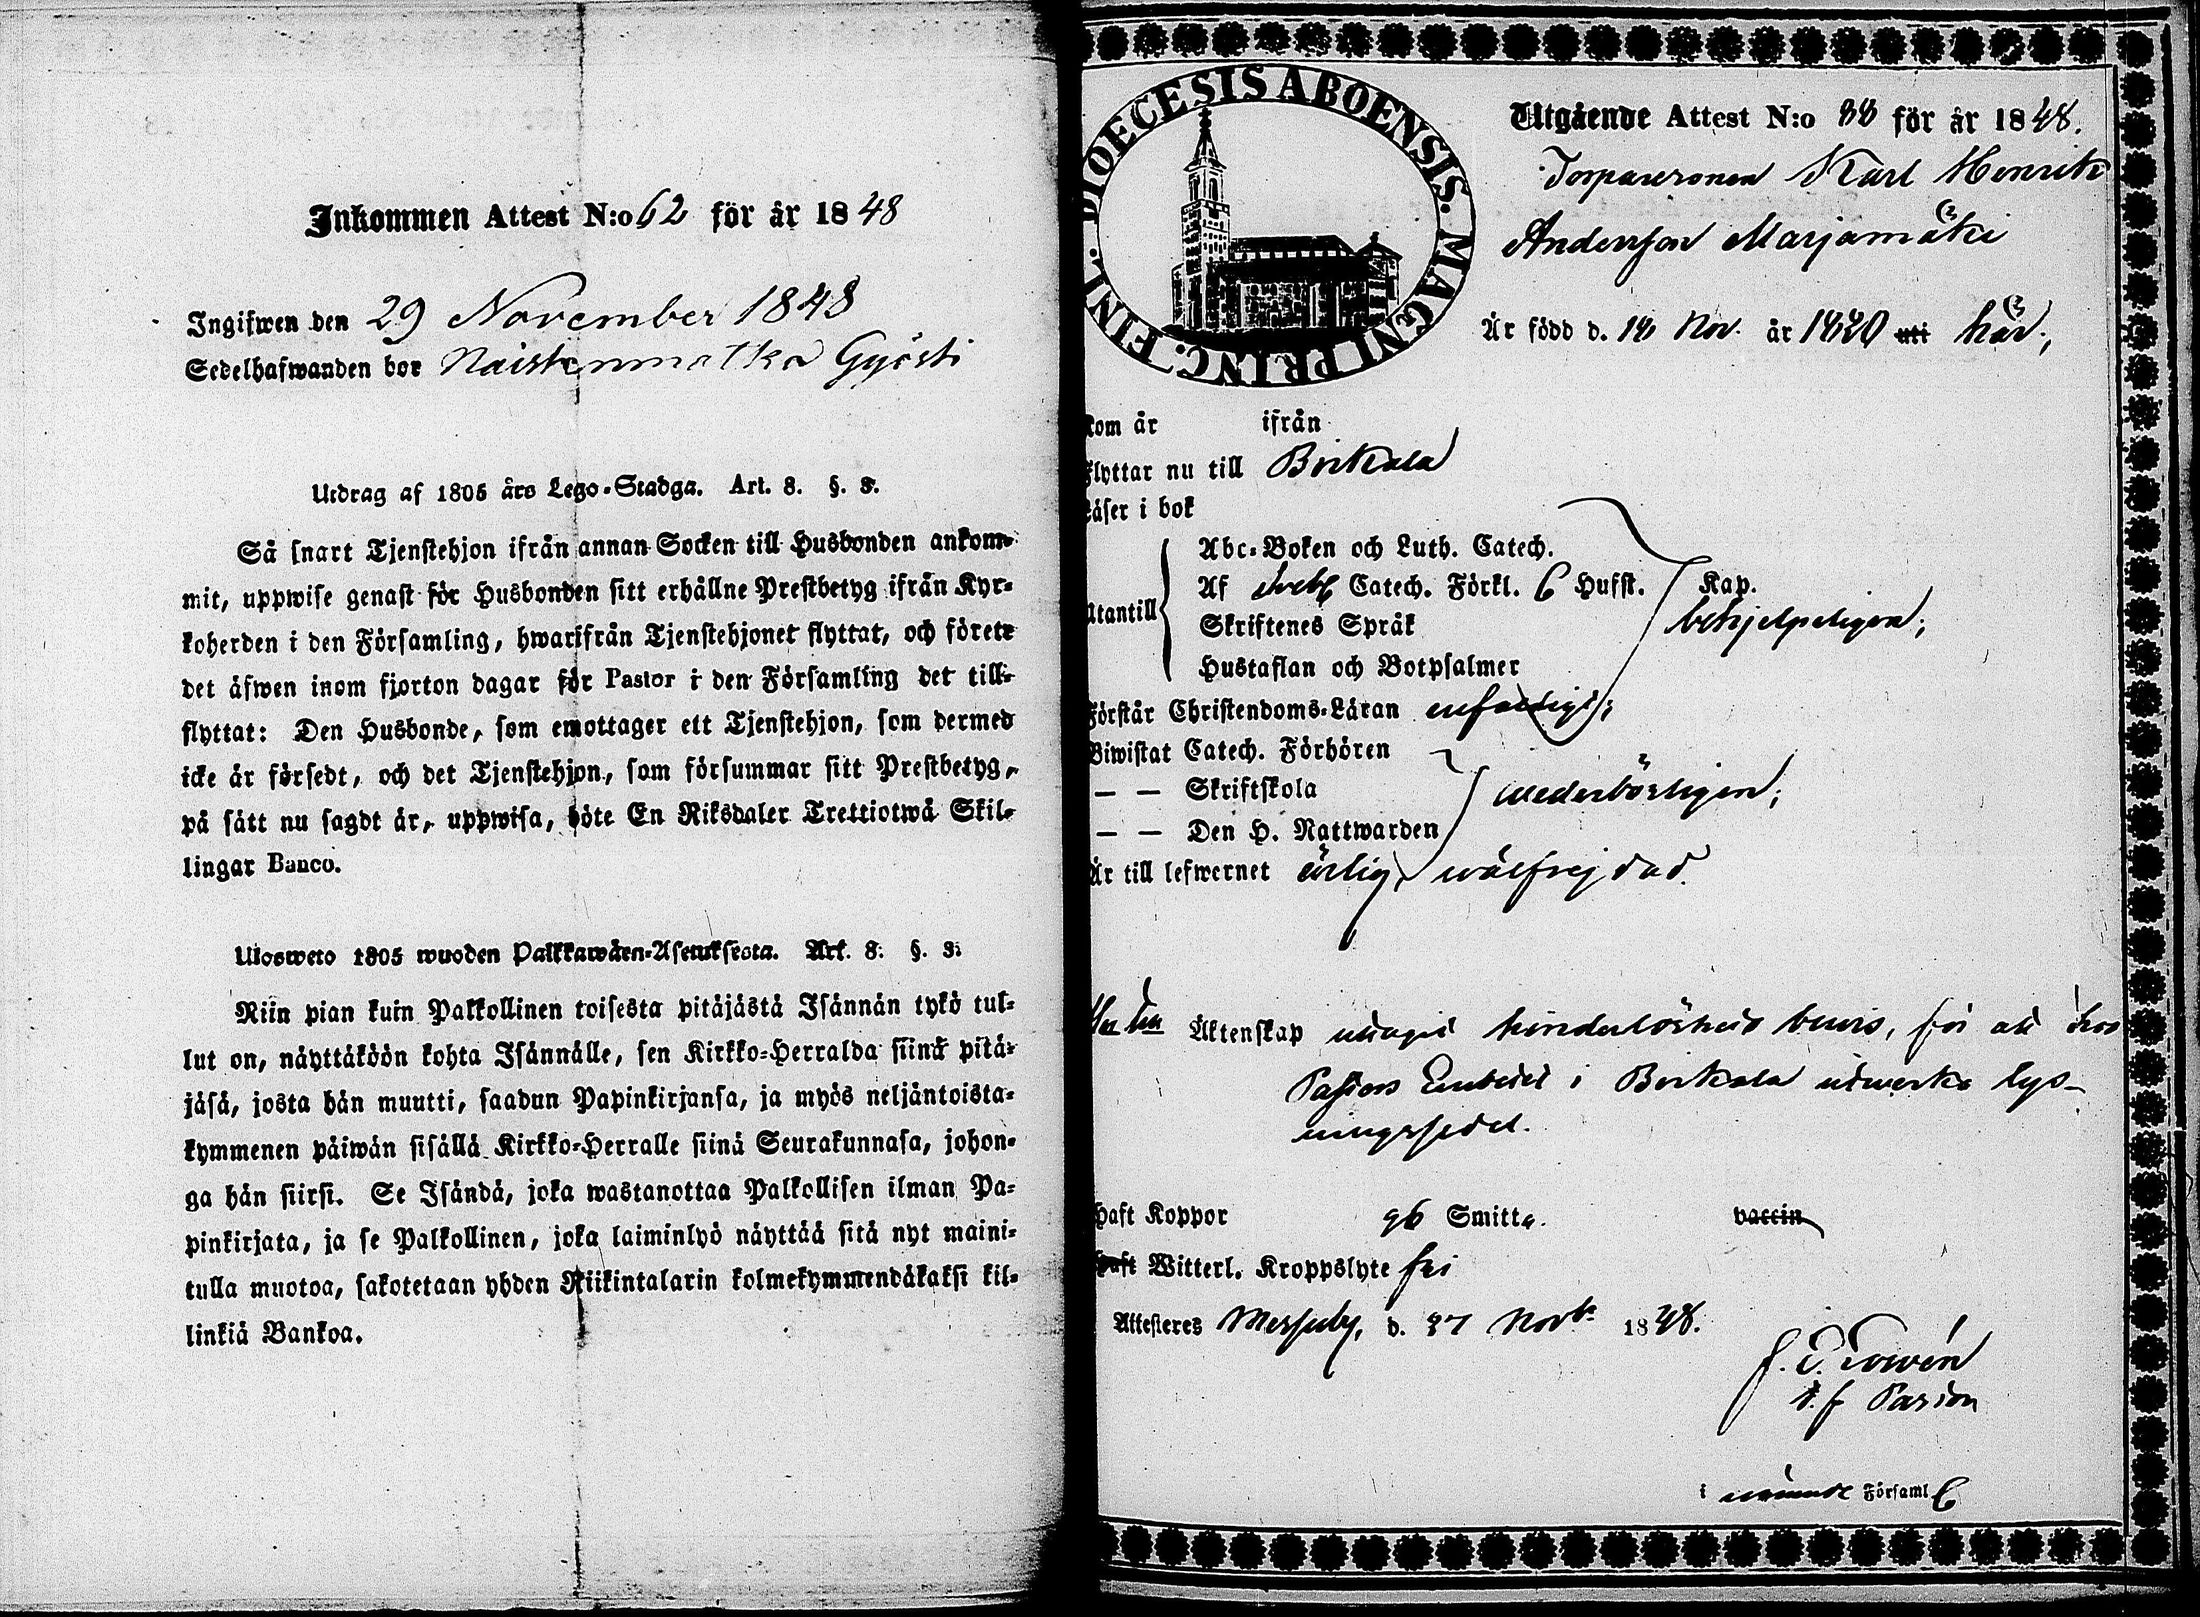 Inkommen Attest N:o 62 för år 1848
Ingifwen den 29 November 1848
Sedelhafwanden bor Naistenmatka Gyösti
Utdrag af 1805 års Lego-Stadga. Art. 8. §. 3.
Så snart Tjenstehjon ifrån annan Socken till Husbonden ankom-
mit, uppwise genast för Husbonden sitt erhållne Prestbetyg ifrån Kyr-
koherden i den Församling, hwarifrån Tjenstehjonet flyttat, och förete
det äfwen inom fjorton dagar för Pastor i den Församling det till-
flyttat: Den Husbonde, som emottager ett Tjenstehjon, som dermed
icke är försedt, och det Tjenstehjon, som försummar sitt Prestbetyg,
på sätt nu sagdt är, uppwisa, böte En Riksdaler Trettiotwå Skil-
lingar Banco.
Ulosweto 1805 wuoden Palkkawäen-Asetuksesta. Art. 8. §. 3.
Niin pian kuin Palkollinen toisesta pitäjästä Isännän tykö tul-
lut on, näyttäköön kohta Isännälle, sen Kirkko-Herralda siinä pitä-
jäsä, josta hän muutti, saadun Papinkirjansa, ja myös neljäntoista-
kymmenen päiwän sisällä Kirkko-Herralle siinä Seurakunnasa, johon-
ga hän siirsi. Se Isändä, joka wastanottaa Palkollisen ilman Pa-
pinkirjata, ja se Palkollinen, joka laiminlyö näyttää sitä nyt maini-
tulla muotoa, sakotetaan yhden Riikintalarin kolmekymmendäkaksi kil-
linkiä Bankoa.
DIOECESIS ABOENSIS. MAGNI PRINC. FINL.
Utgående Attest N:o 88 för år 1848.
Torparesonen Karl Henrik
Andersson Marjamäki
Är född d. 18 Nov. år 1820 uti här;
Kom år ifrån
Flyttar nu till Birkala
Läser i bok
Abc-Boken och Luth. Catech.
Af Sveb. Catech. Förkl. 6 Hufst. Kap.
Utantill
Skriftenes Språk
behjelpeligen;
Hustaflan och Botpsalmer
Förstår Christendoms-Läran enfaldigt;
Biwistat Catech. Förhören
— — Skriftskola wederbörligen;
— — Den H. Nattwarden
Är till lefwernet ärlig, wälfrejdad.
Äktenskap uttagit hinderlöshets bewis, för att hos
Pastors Embetet i Birkala utwerka lys-
ningssedel.
Haft Koppor gb Smitta. vaccin
Haft Witterl. Kroppslyte fri
Attesteres Messuby, d. 27 Novb. 1848.
t. f. Pastor
i nämnde Församl